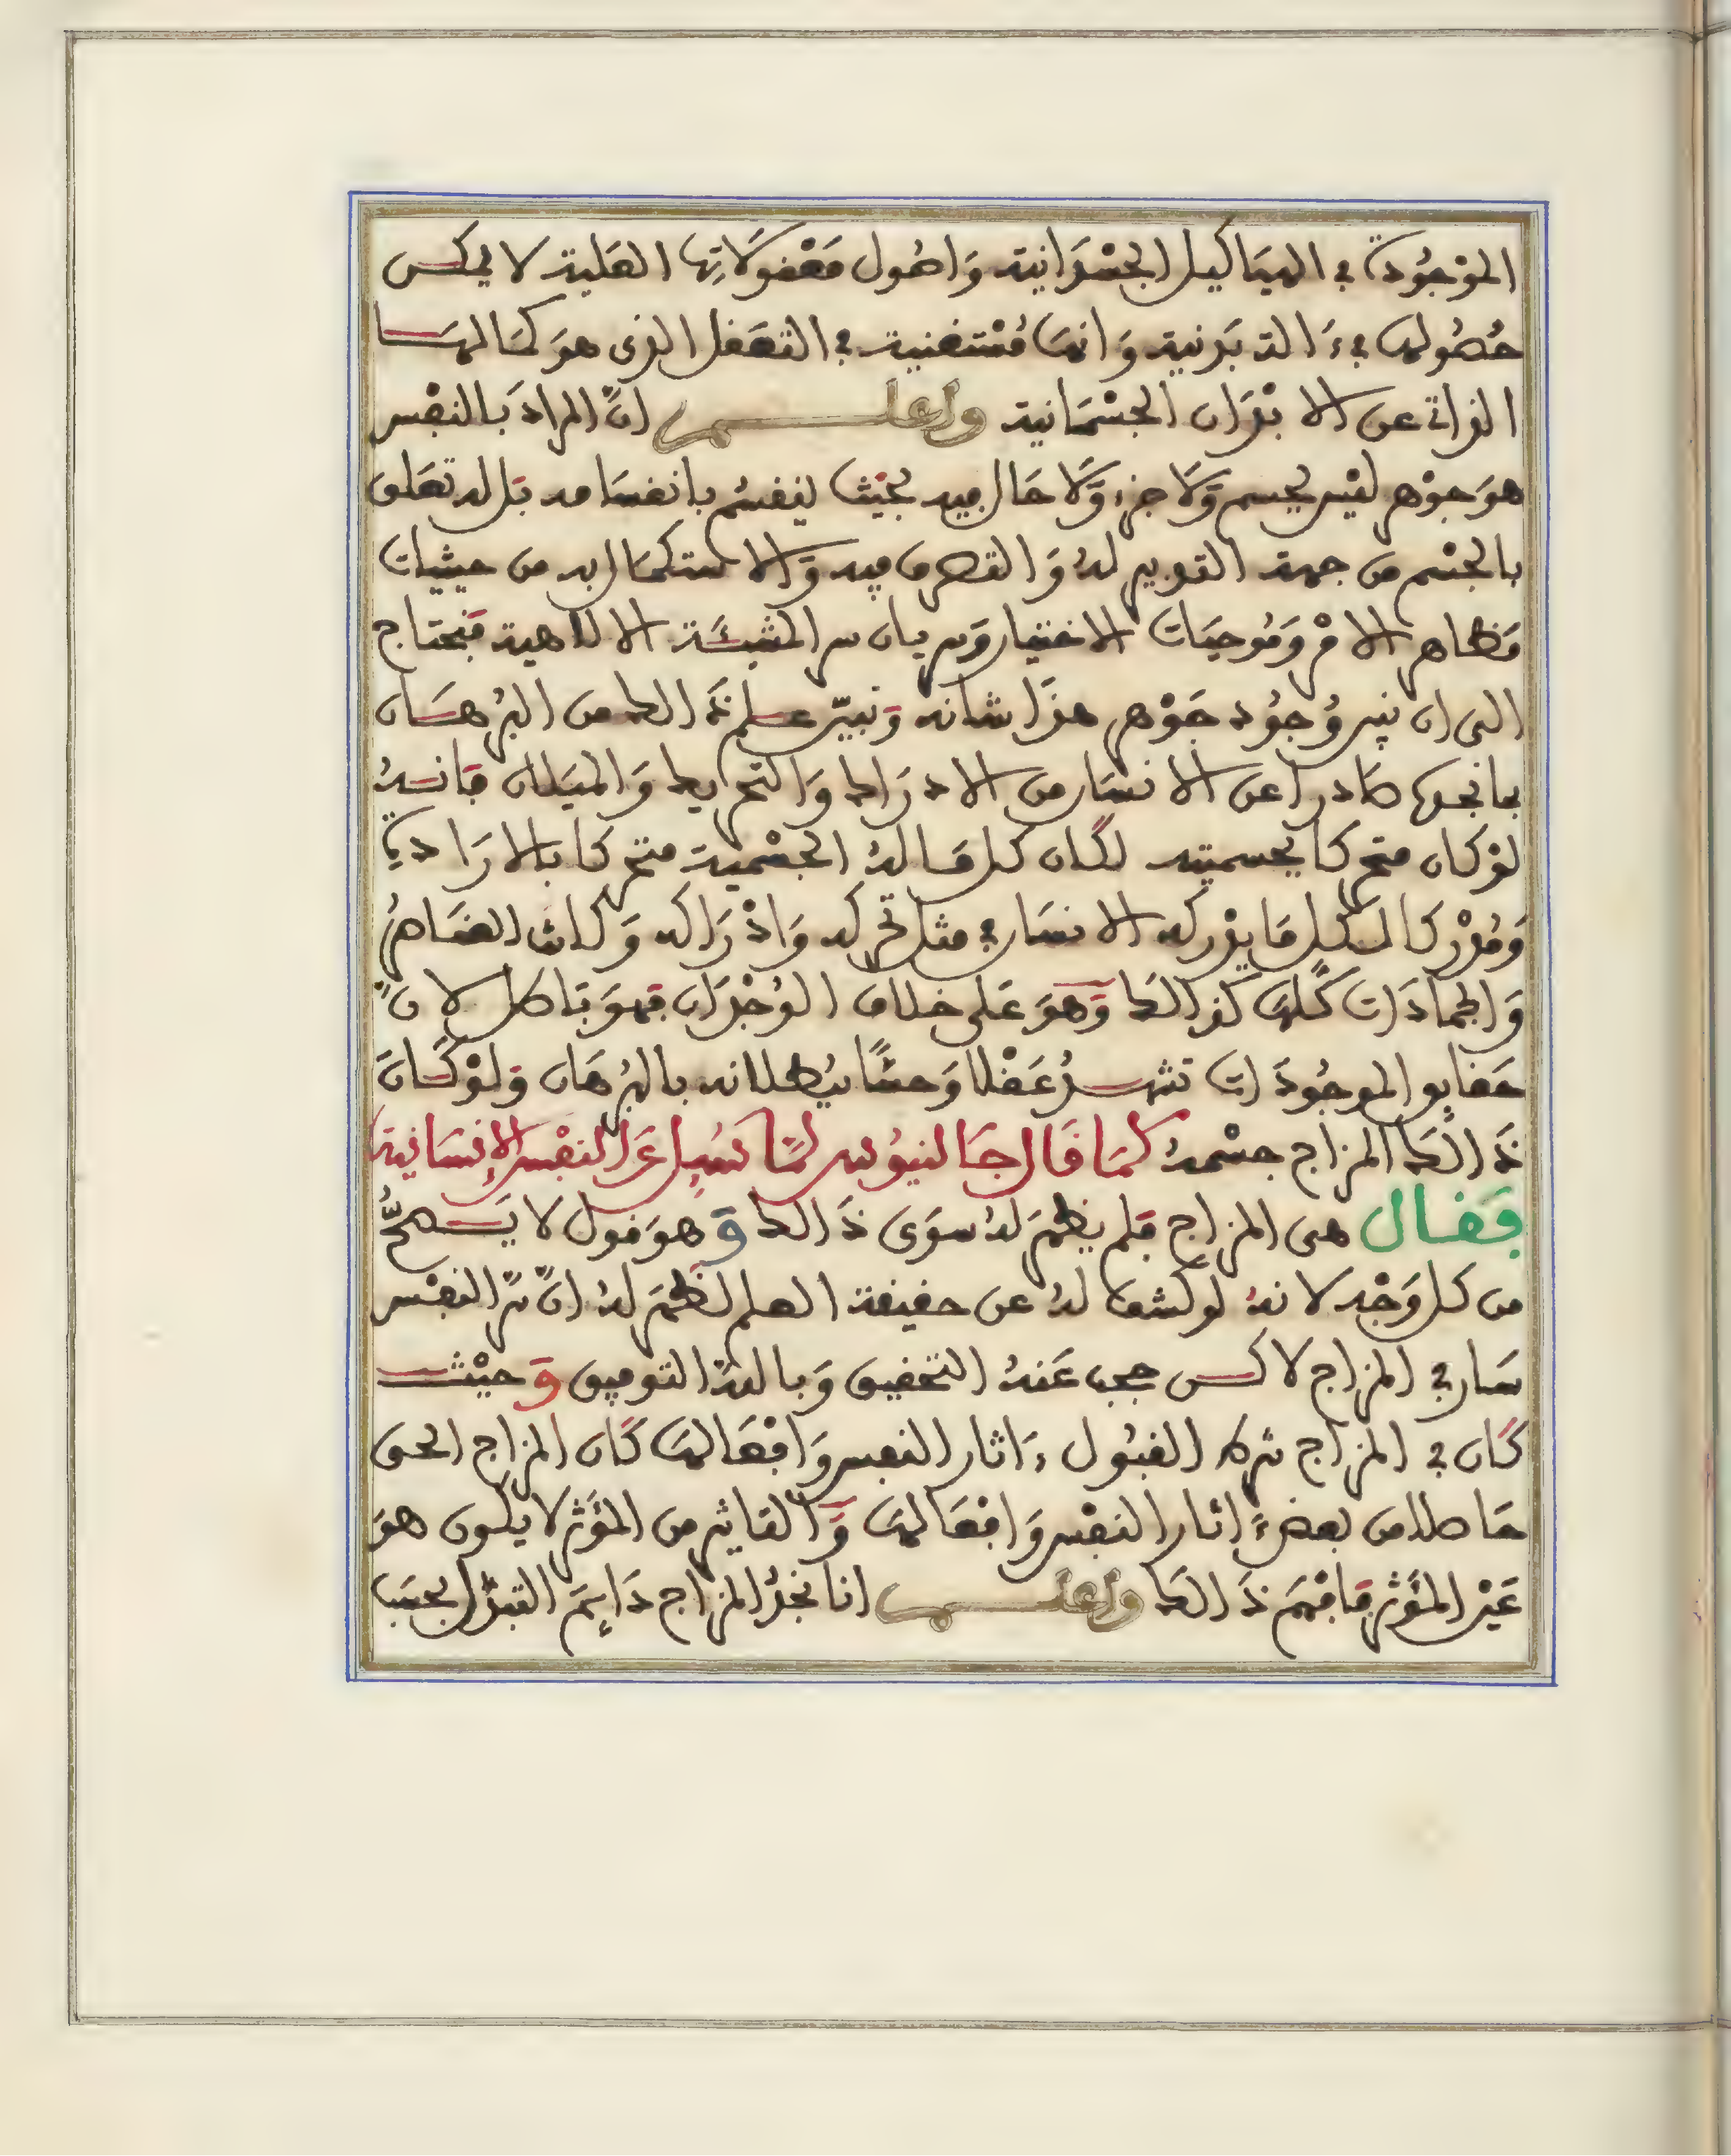 الموْجُودة في الهيَاكيل الجسْدَانية وَاصُول مَعْقولَاتِها العَلية لا يمكن
حُصُولها في ءَالة بَدنية وَانهَا مُسْتغنية في التعَقل الذي هوَ كمَا لهَا
الذاتي عن الابْدَان الجسْمَانية واعلم انَّ المراد بَالنفْس
هوَ جوْهر ليْس بجسم وَلَا جزء وَلَا حَال فيه بحيْث ينقسم بانقسَامه بَل له تعَلق
بالجسْم من جهة التدبير لهُ وَالتصرف فيه وَالاستكمَال به من حيثيات
مَظاهر الامْر وَمُوجبَات الاختيار وَسريان سر المشيئَة الالاهية فيحتاج
الى ان نبين وُجوُد جَوْهر هذَا شانه وَنبيّن علم ذَالك من البُرهَان
بما نجدها صَادرا عن الانسَان من الادرَاك وَالتحريك وَالميَلان فانهُ
لوْ كان متحركا بجسميته لكَان كل مَا لهُ الجسْمية متحركا بالارَادة
وَمُدْركا لكل مَا يدْركه الانسَان في مثل تحركه وَادْرَاكه وَكانت العنَاصرُ
وَالجمادَات كُلهَا كذالك وَهوَ عَلى خلاف الوُجْدَان فهوَ بَاطل لانَّ
حقايق الموجُودَات تشهدُ عَقْلا وَحسًّا ببُطلانه بالبُرهَان وَلوْ كَانَ
ذَالكَ المزاج جسْمهُ كمَا قَال جَالنيوُس لمَّا سُيِل عَن النفْس الإنسَانية
فَقَال هى المزاج فلم يظهَر لهُ سوَى ذَالك وَهوَ قول لا يَصحُّ
من كل وَجْه لانهُ لو كشف لهُ عن حقيقة العلم لظهَر لهُ انَّ سِرَّ النفْس
سَار في المزاج لاكن حجب عَنهُ التحقيق وَبالله التوفيق وَحيْث
كَان في المزاج شرط القبُول ءَاثار النفس وَافعَالهَا كَان المزاج الحى
حَاصلا من بعض ءَاثار النفْس وَافعَالهَا وَالتاثير من المؤَثر لا يكون هوَ
غَيْر المؤَثر فافهَم ذَالك واعلم انا نجدُ المزاج دَايمَ التبدّل بحسَب